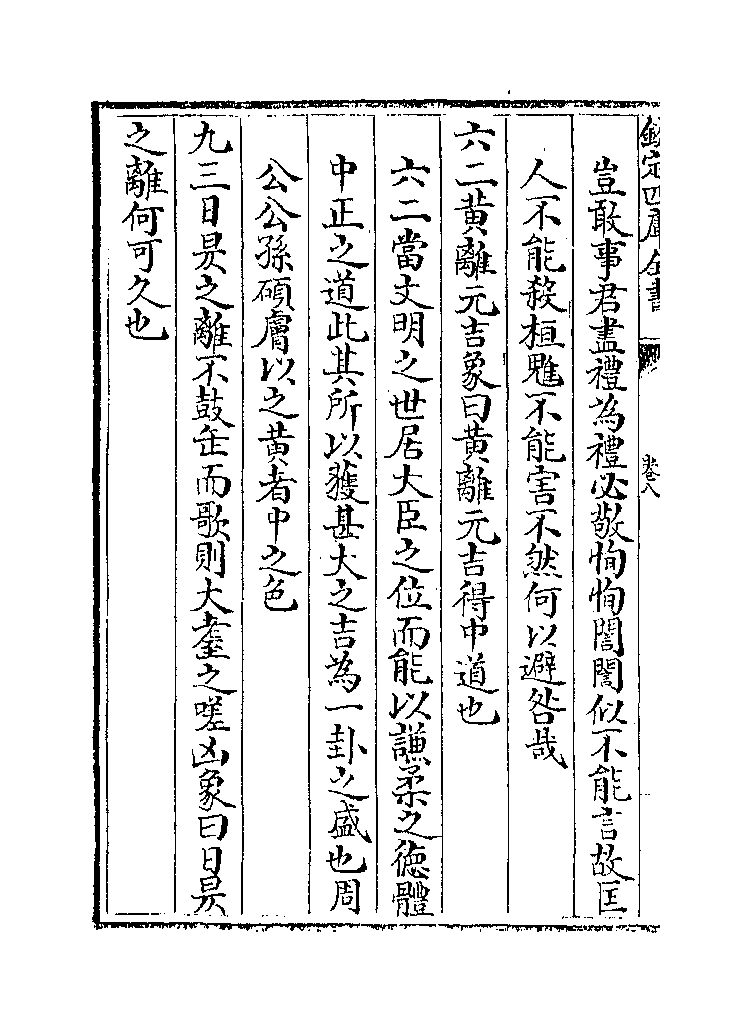 欽定四庫全書
卷八
豈敢事君盡禮為禮必敬恂恂誾誾似不能言故匡
人不能殺桓魋不能害不然何以避咎哉
六二黃離元吉象曰黃離元吉得中道也
六二當文明之世居大臣之位而能以謙柔之德體
中正之道此其所以獲甚大之吉為一卦之盛也周
公公孫碩膚以之黃者中之色
九三日昃之離不鼓缶而歌則大耋之嗟凶象曰日昃
之離何可久也